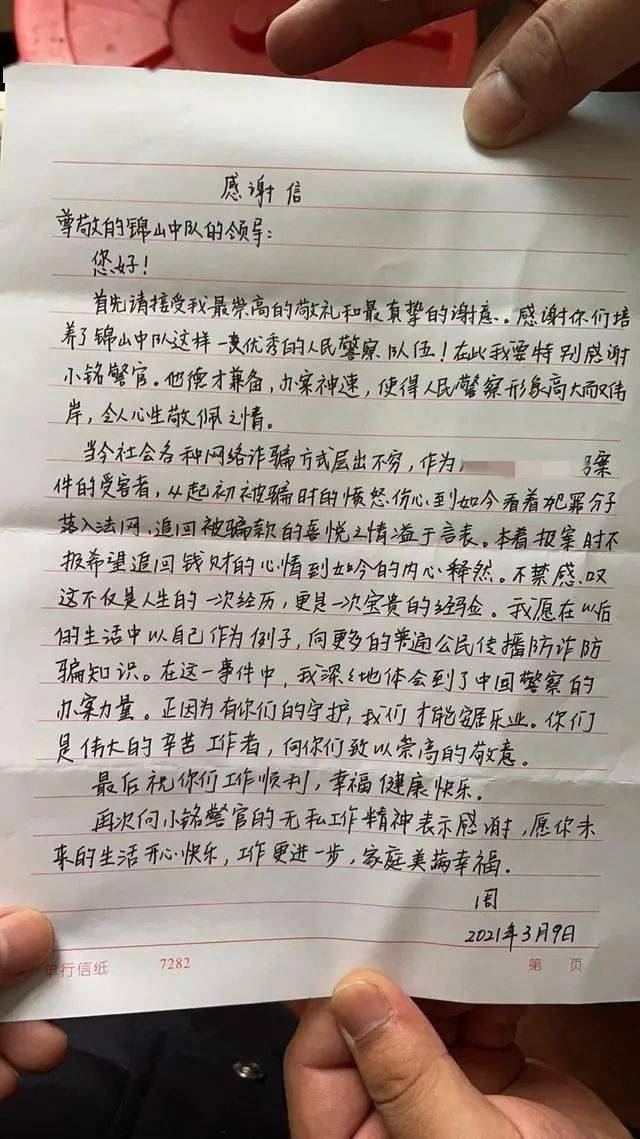 感谢信
尊敬的锦山中队的领导：
您好！
首先请接受我最崇高的敬礼和最真挚的谢意。感谢你们培
养了锦山中队这样一支优秀的人民警察队伍！在此我要特别感谢
小铭警官。他德才兼备，办案神速，使得人民警察形象高大而又伟
岸，令人心生敬佩之情。
当今社会各种网络诈骗方式层出不穷，作为 案
件的受害者，从起初被骗时的愤怒伤心到如今看着犯罪分子
落入法网，追回被骗款的喜悦之情溢于言表。本着报案时不
报希望追回钱财的心情到如今的内心释然。不禁感叹
这不仅是人生的一次经历，更是一次宝贵的经验。我愿在以后
的生活中以自己作为例子，向更多的普通公民传播防诈防
骗知识。在这一事件中，我深深地体会到了中国警察的
办案力量。正因为有你们的守护，我们才能安居乐业。你们
是伟大的辛苦工作者，向你们致以崇高的敬意。
最后祝你们工作顺利，幸福健康快乐。
再次向小铭警官的无私工作精神表示感谢，愿你未
来的生活开心快乐，工作更进一步，家庭美满幸福。
周
2021年3月9日
单行信纸 7282 第 页